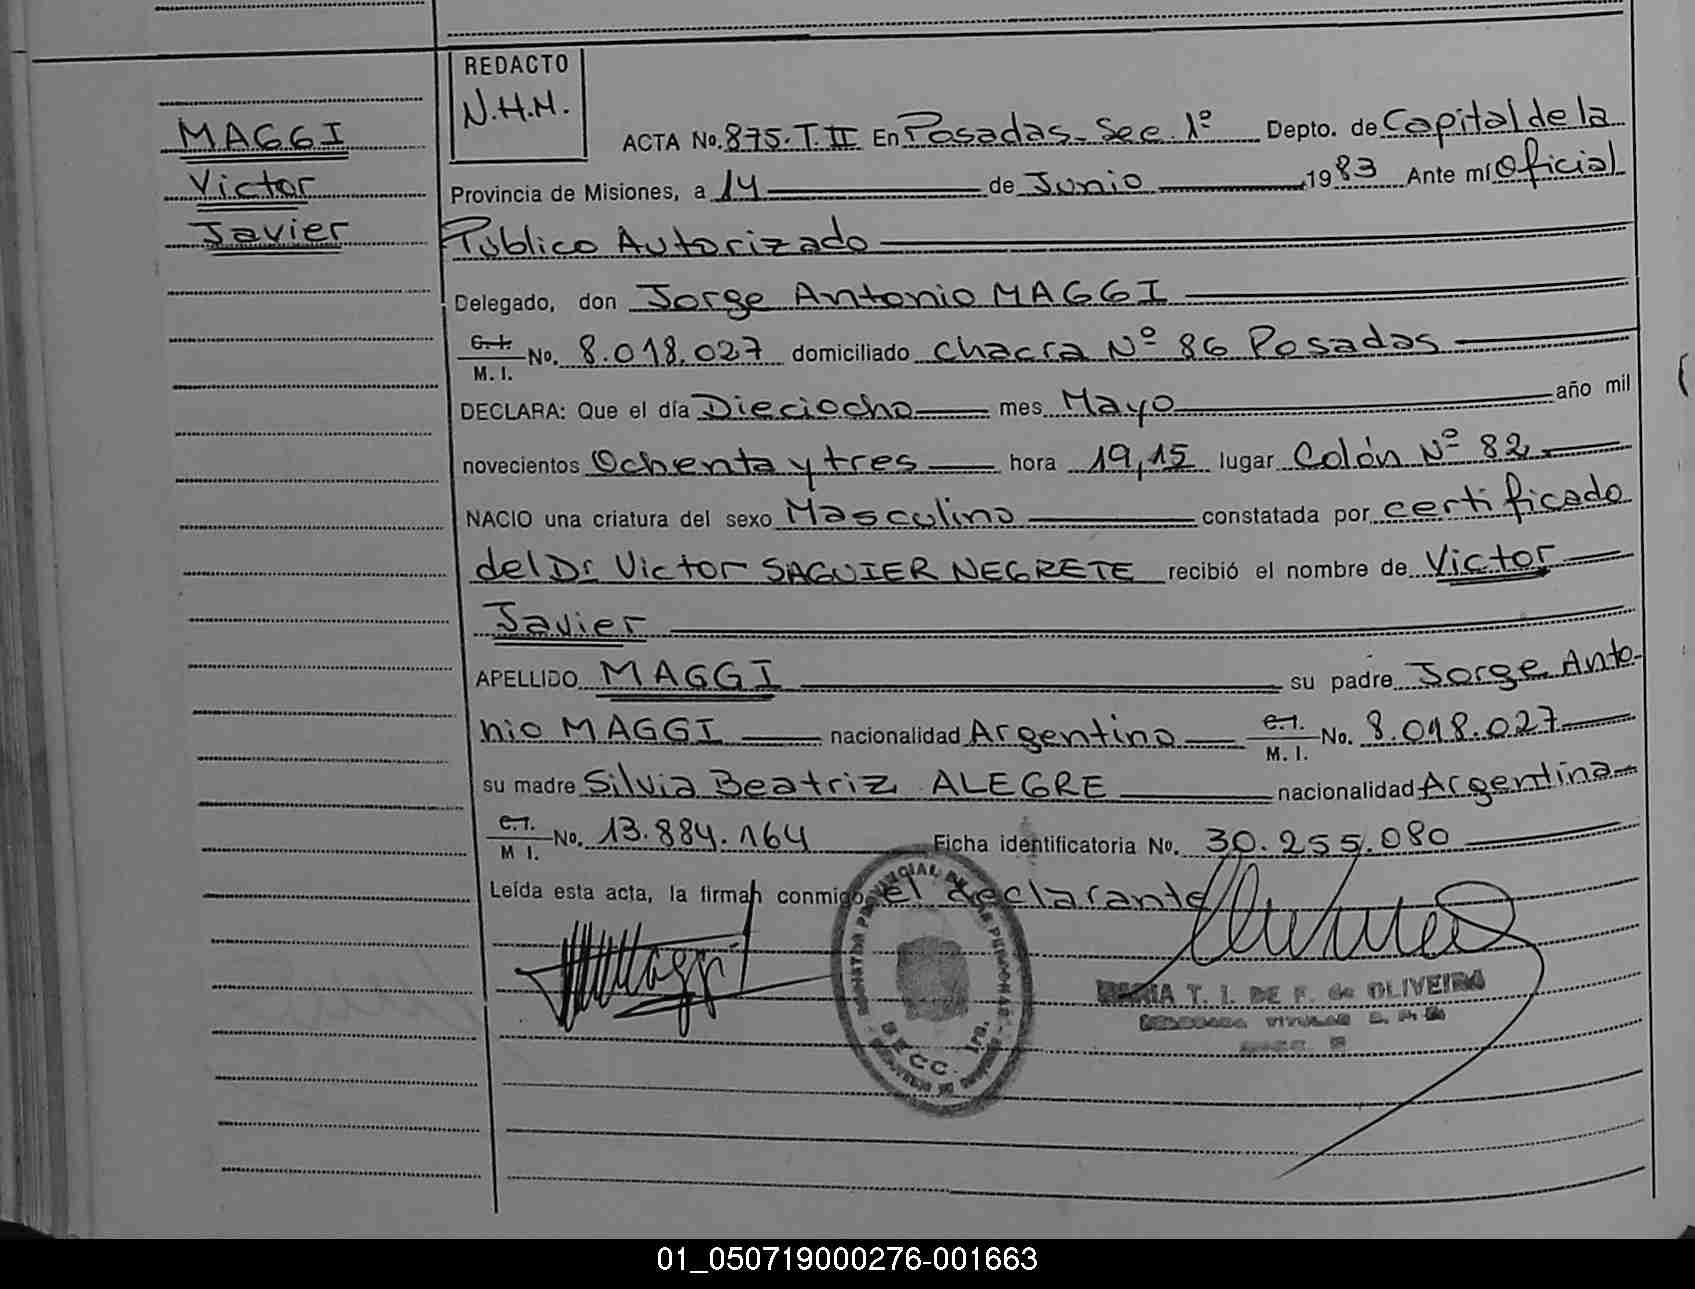 REDACTO
N.H.M.
MAGGI
Victor
Javier
ACTA No. 875.T.II En Posadas-Sec.1º Depto. de Capital de la
Provincia de Misiones, a 14 de Junio 1983 Ante mí Oficial
Público Autorizado
Delegado, don Jorge Antonio MAGGI
C.I. M.I. No. 8.018.027 domiciliado chacra Nº 86 Posadas
DECLARA: Que el día Dieciocho mes Mayo año mil
novecientos Ochenta y tres hora 19,15 lugar Colón Nº 82
NACIO una criatura del sexo Masculino constatada por certificado
del Dr Victor SAGUIER NEGRETE recibió el nombre de Victor
Javier
APELLIDO MAGGI su padre Jorge Anto-
nio MAGGI nacionalidad Argentino C.I. M.I. No. 8.018.027
su madre Silvia Beatriz ALEGRE nacionalidad Argentina
C.I. M I. No. 13.884.164 Ficha identificatoria No. 30.255.080
Leída esta acta, la firman conmigo el declarante
Maggi
PROVINCIAL DE LAS PERSONAS
SECC. 1ra.
MARIA T. I. DE F. de OLIVEIRA
DELEGADA TITULAR
01_050719000276-001663